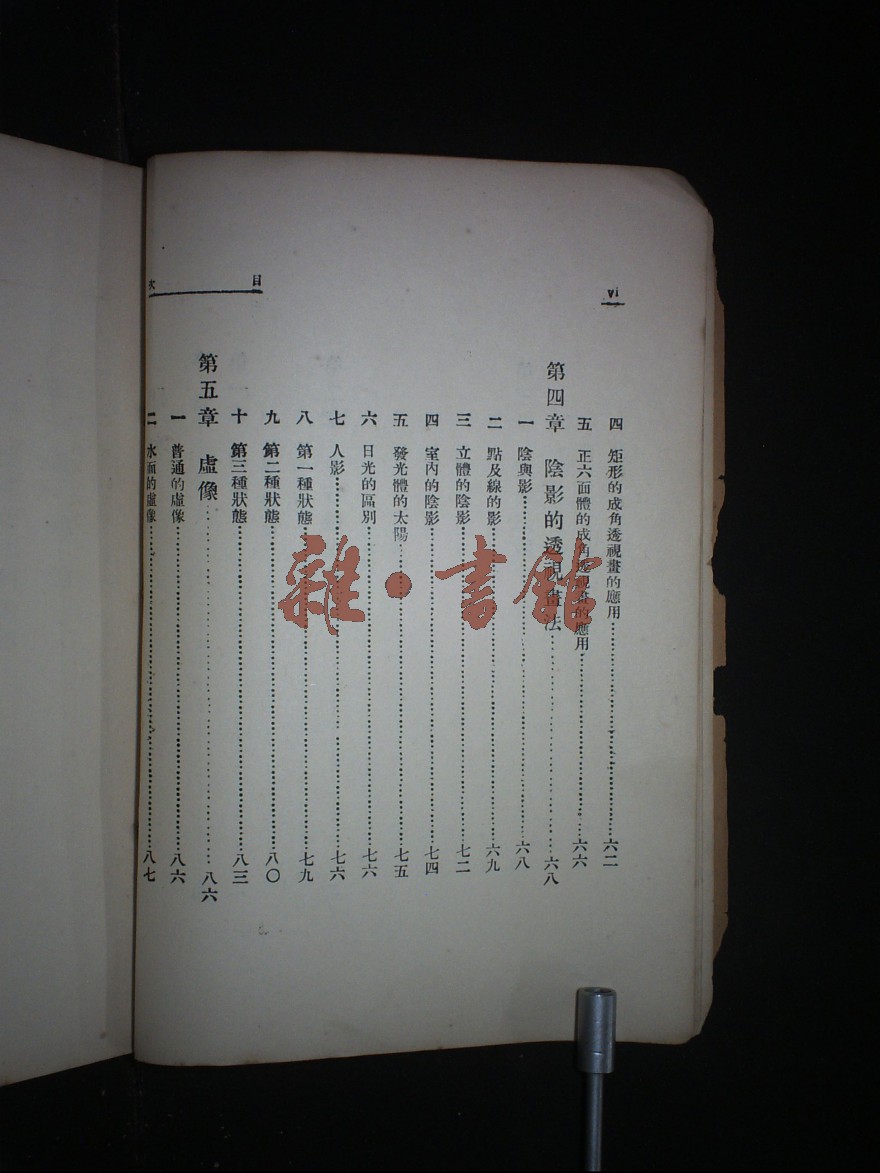 vi
目次
四 矩形的成角透視畫的應用……六二
五 正六面體的成角透視畫的應用……六六
第四章 陰影的透視畫法……六八
一 陰與影……六八
二 點及線的影……六九
三 立體的陰影……七二
四 室內的陰影……七四
五 發光體的太陽……七五
六 日光的區別……七六
七 人影……七六
八 第一種狀態……七九
九 第二種狀態……八〇
十 第三種狀態……八三
第五章 虛像……八六
一 普通的虛像……八六
二 水面的虛像……八七
雜·書館